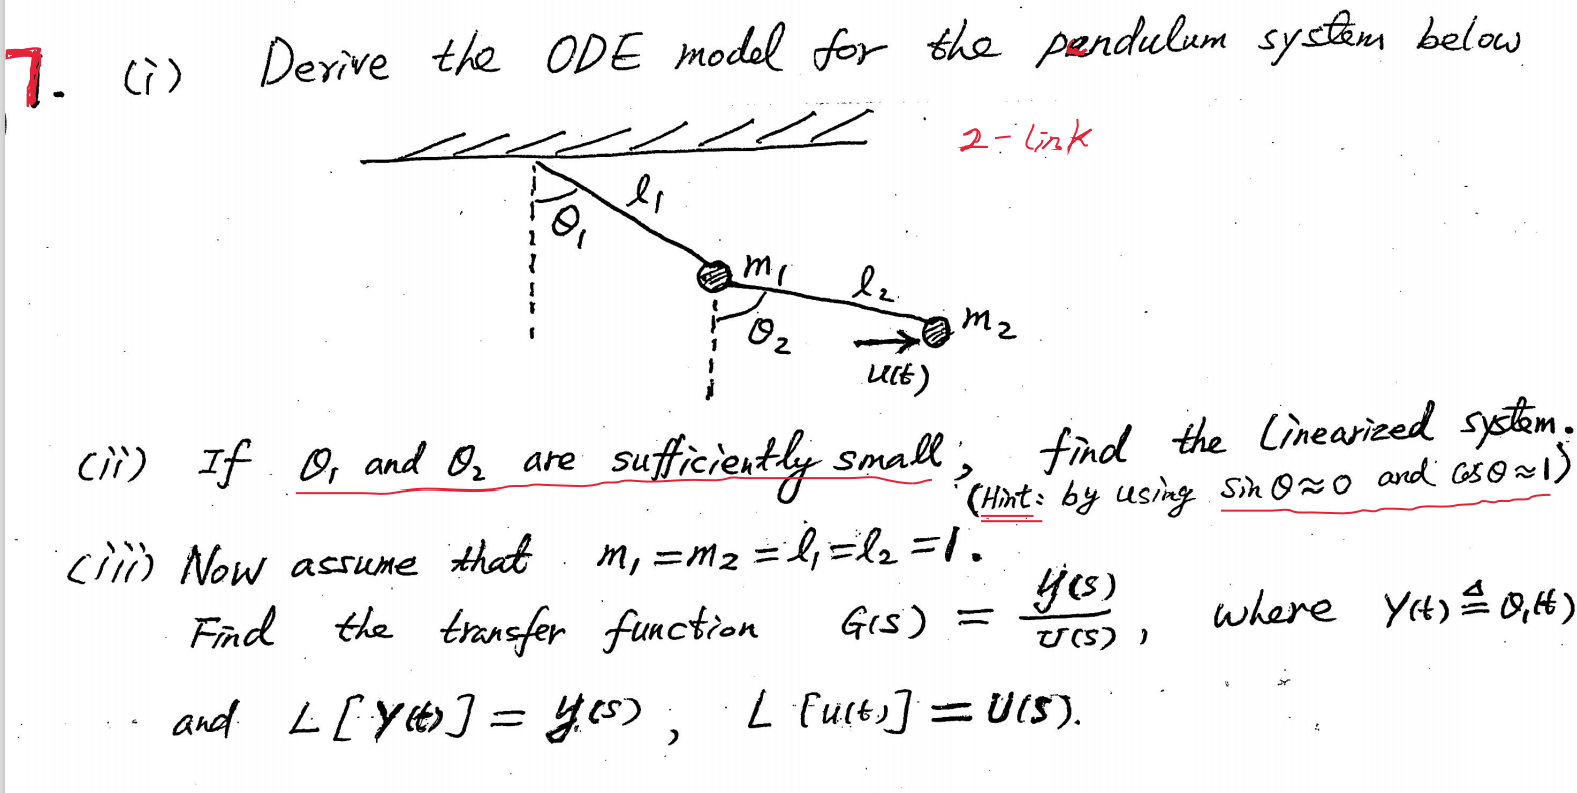 7. (i) Derive the ODE model for the pendulum system below
2-link
l₁
θ₁
m₁
l₂
m₂
θ₂
u(t)
(ii) If θ₁ and θ₂ are sufficiently small, find the linearized system.
(Hint: by using sin θ≈0 and cos θ≈1)
(iii) Now assume that m₁=m₂=l₁=l₂=1.
Find the transfer function G(s) = y(s)/U(s), where y(t) ≜ θ₁(t)
and L[y(t)] = y(s), L[u(t)] = U(s).